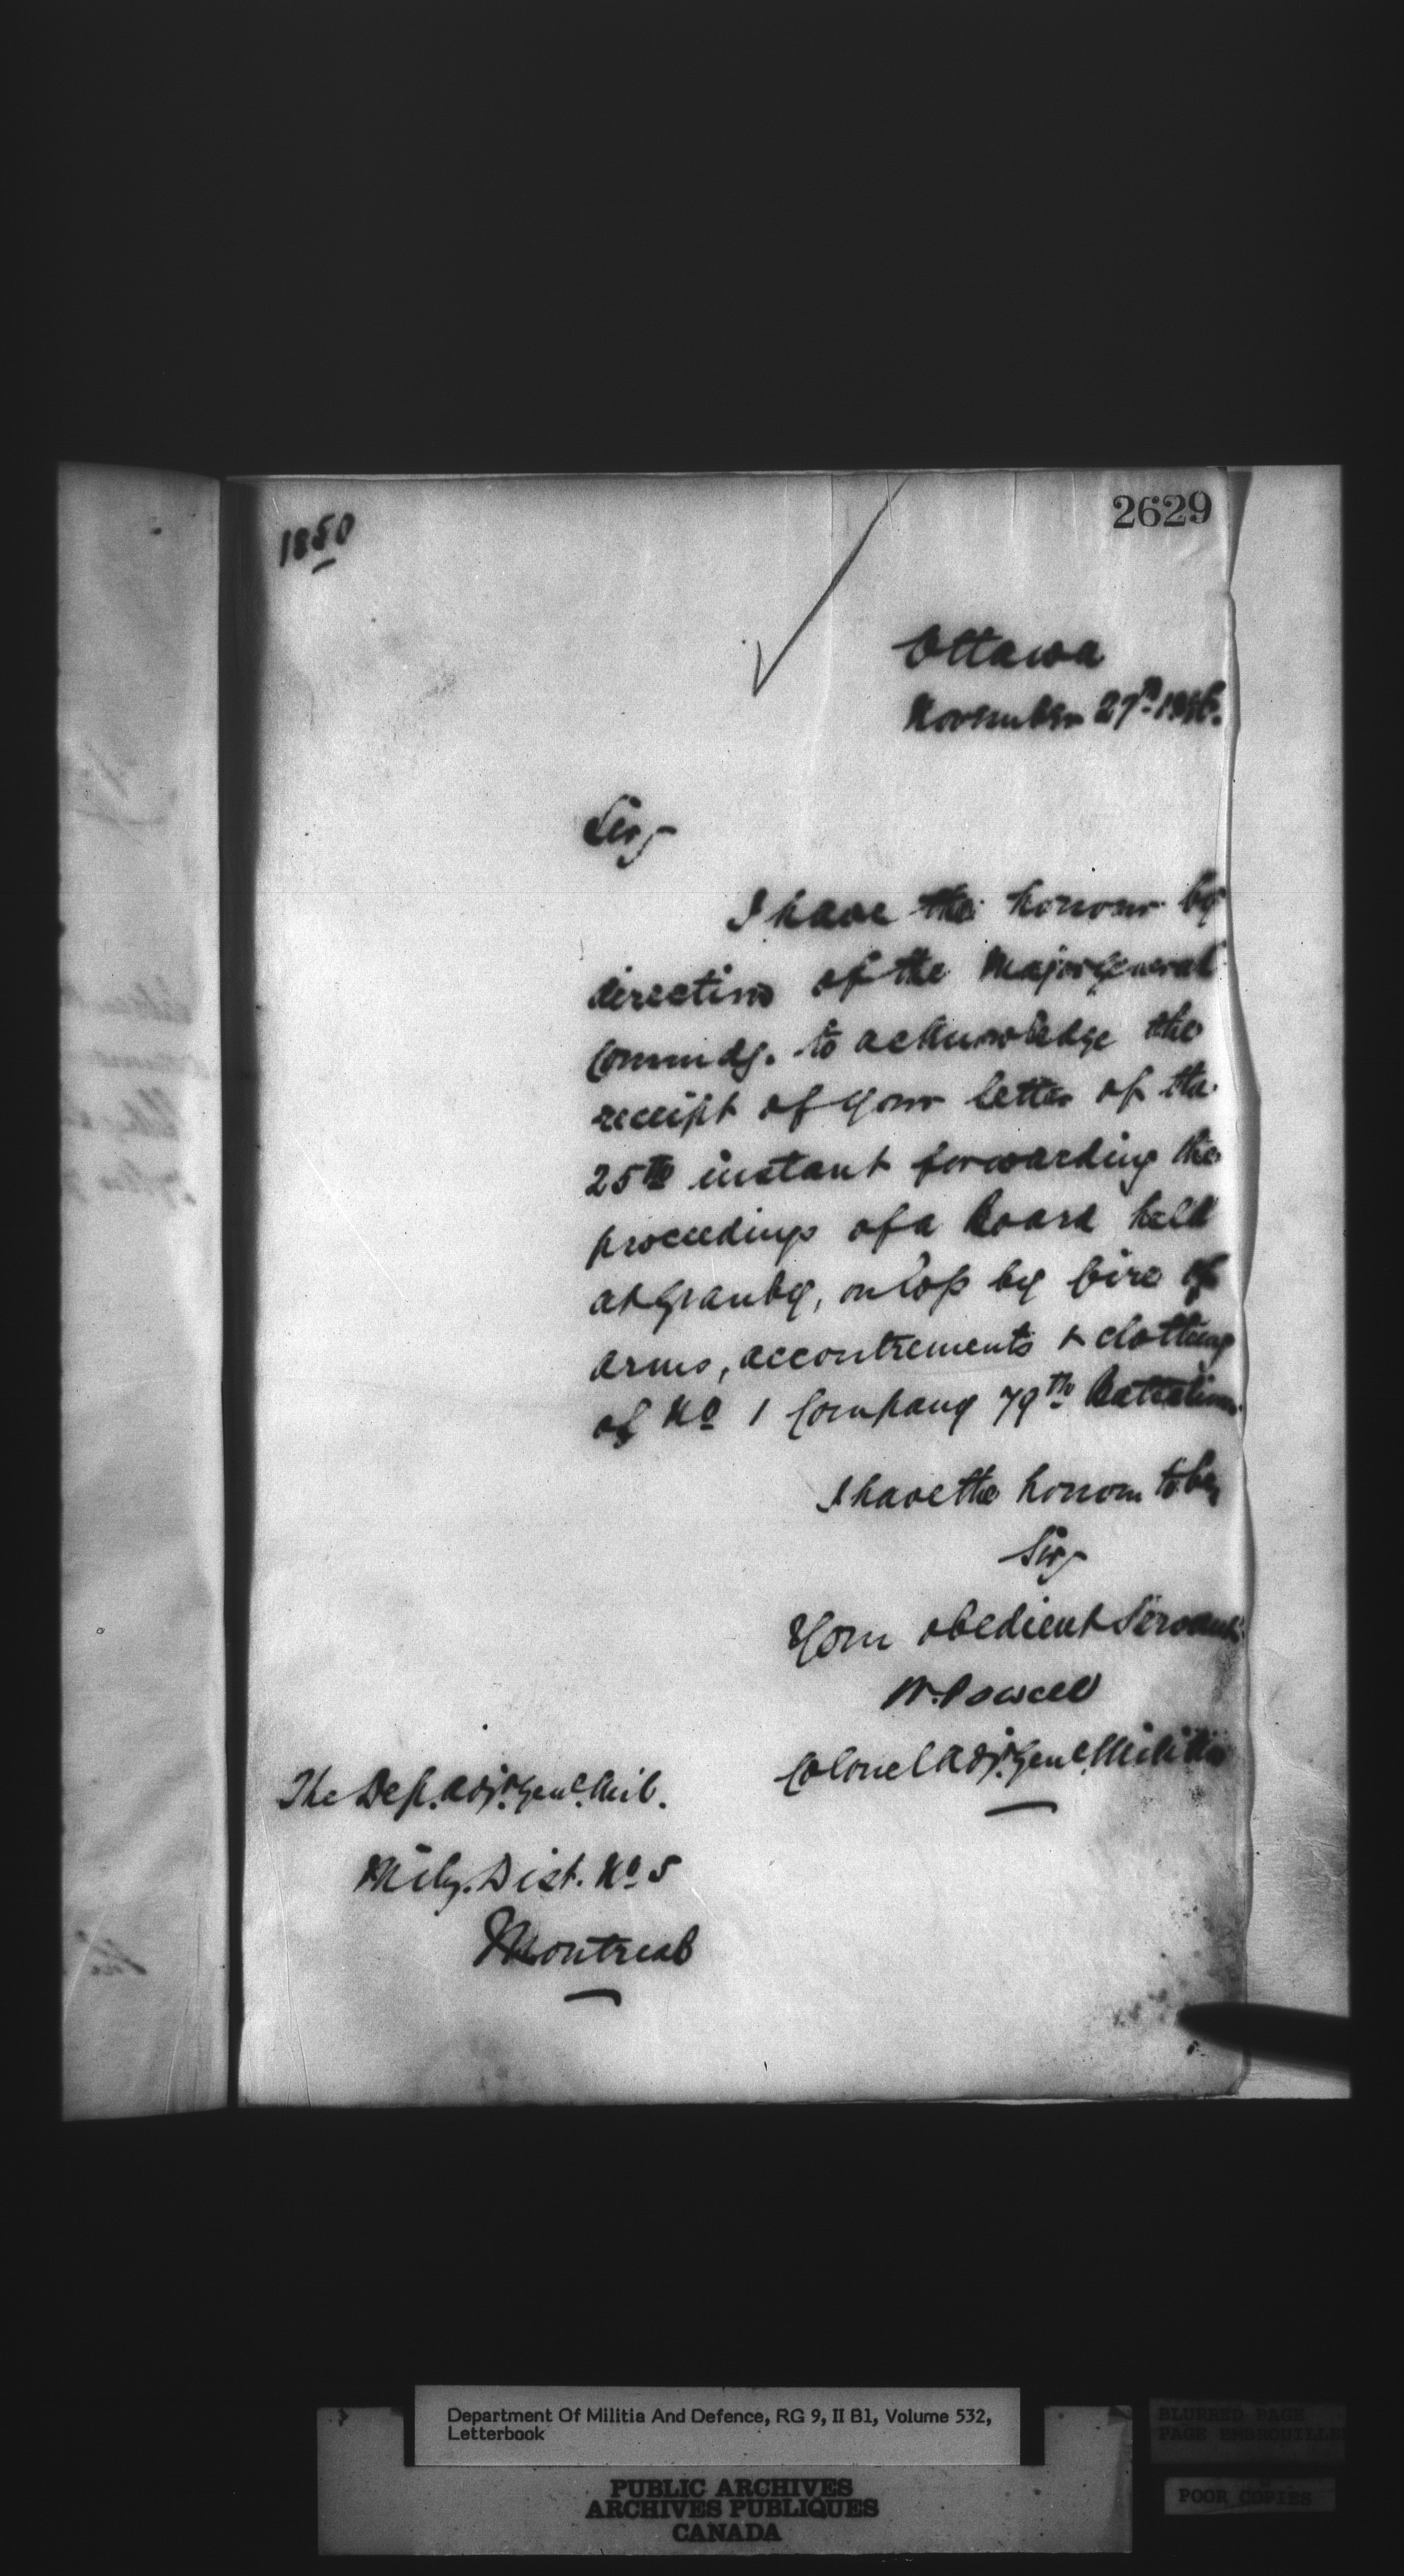 1850
2629
Ottawa
November 27th
Sir,
I have the honour by
direction of the Major General
Commdg. to acknowledge the
receipt of your letter of the
25th instant forwarding the
proceedings of a Board held
at Granby, on loss by fire of
arms, accoutrements & clothing
of No 1 Company 79th Battalion.
I have the honour to be,
Sir,
Your obedient Servant
W. Powell
Colonel Adjt. Genl. Militia
The Dep. Adjt. Genl. Mil.
Mily. Dist. No 5
Montreal
Department Of Militia And Defence, RG 9, II B1, Volume 532,
Letterbook
PUBLIC ARCHIVES
ARCHIVES PUBLIQUES
CANADA
BLURRED PAGE
PAGE EMBROUILLE
POOR COPIES